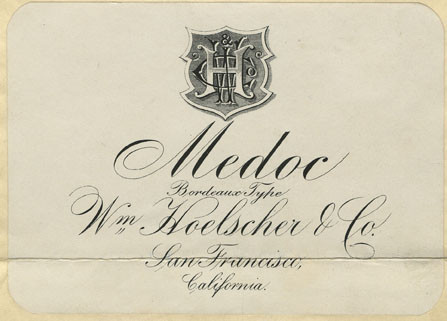 Medoc
Bordeaux Type
Wm Hoelscher & Co.
San Francisco,
California.